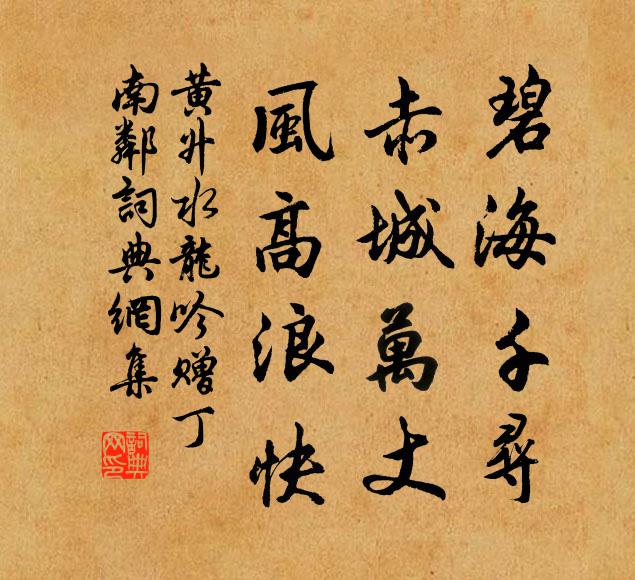 碧海千尋
赤城萬丈
風高浪快
黄升水龍吟赠丁
南鄰詞典網集
詞典
网印